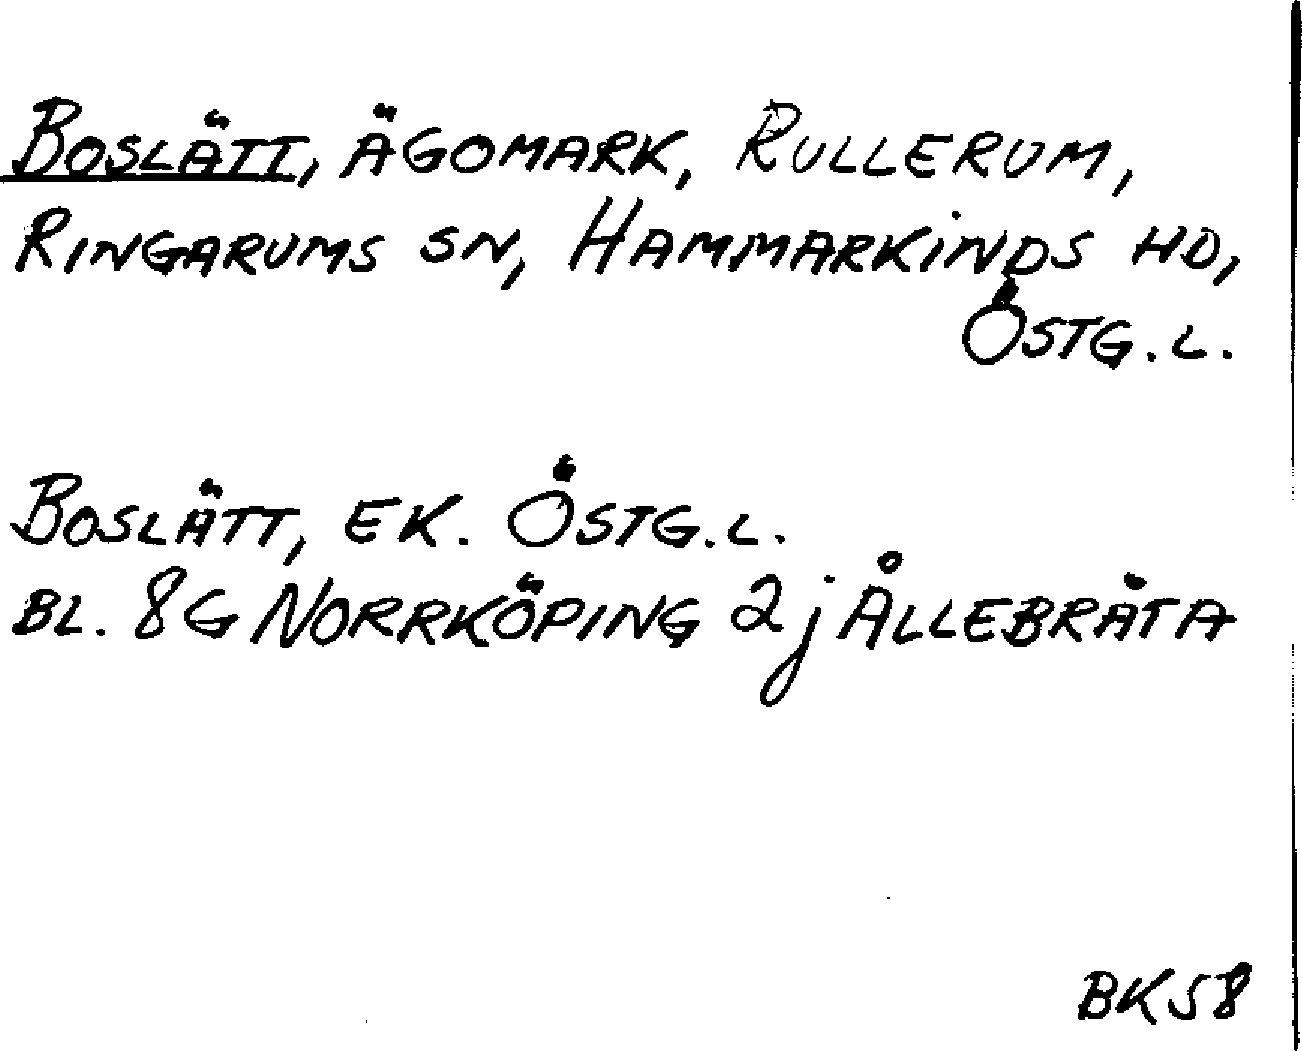 BOSLÄTT, ÄGOMARK, RULLERUM,
RINGARUMS SN, HAMMARKINDS HD,
ÖSTG. L.
BOSLÄTT, EK. ÖSTG. L.
BL. 8G NORRKÖPING 2j ÅLLEBRÄTA
BK58